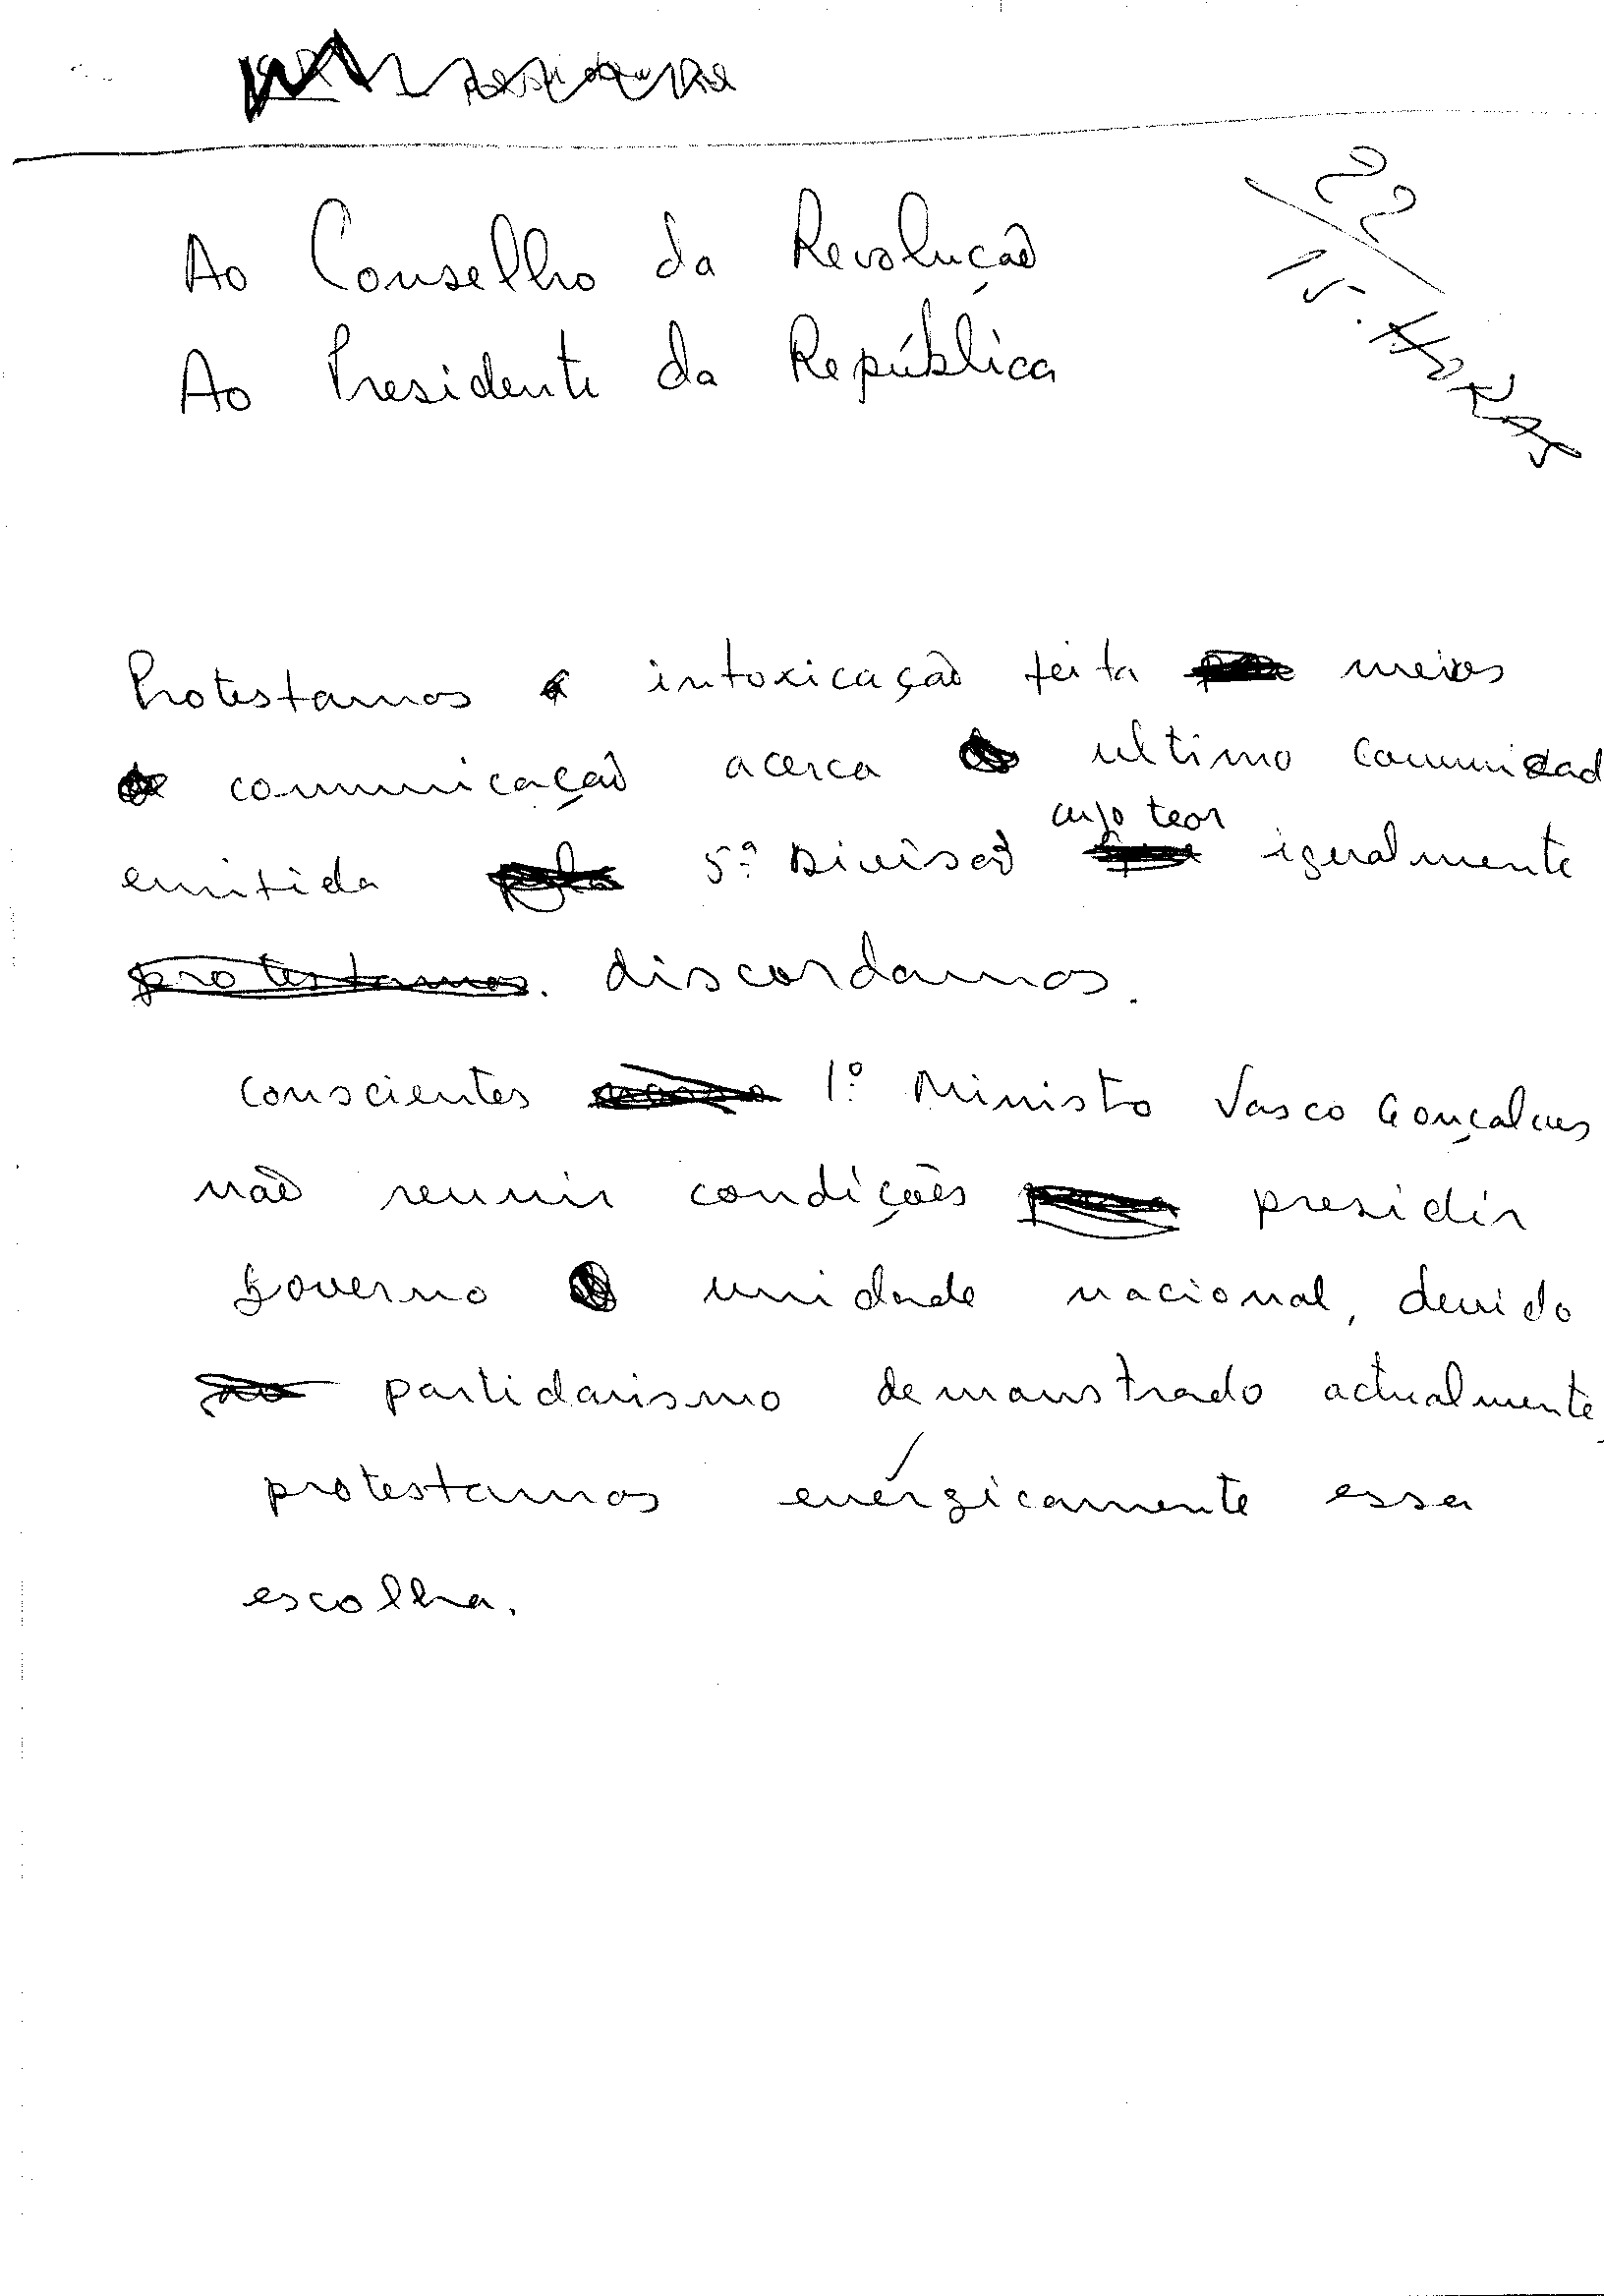 Ao Conselho da Revolução
Ao Presidente da República
22
15. HORAS
Protestamos intoxicação feita meios
comunicação acerca ultimo comunicad
cujo teor
emitida 5ª Divisão igualmente
protestamos. discordamos.
Conscientes 1º Ministro Vasco Gonçalves
não reunir condições presidir
Governo unidade nacional, devido
partidarismo demonstrado actualmente,
protestamos enérgicamente essa
escolha.